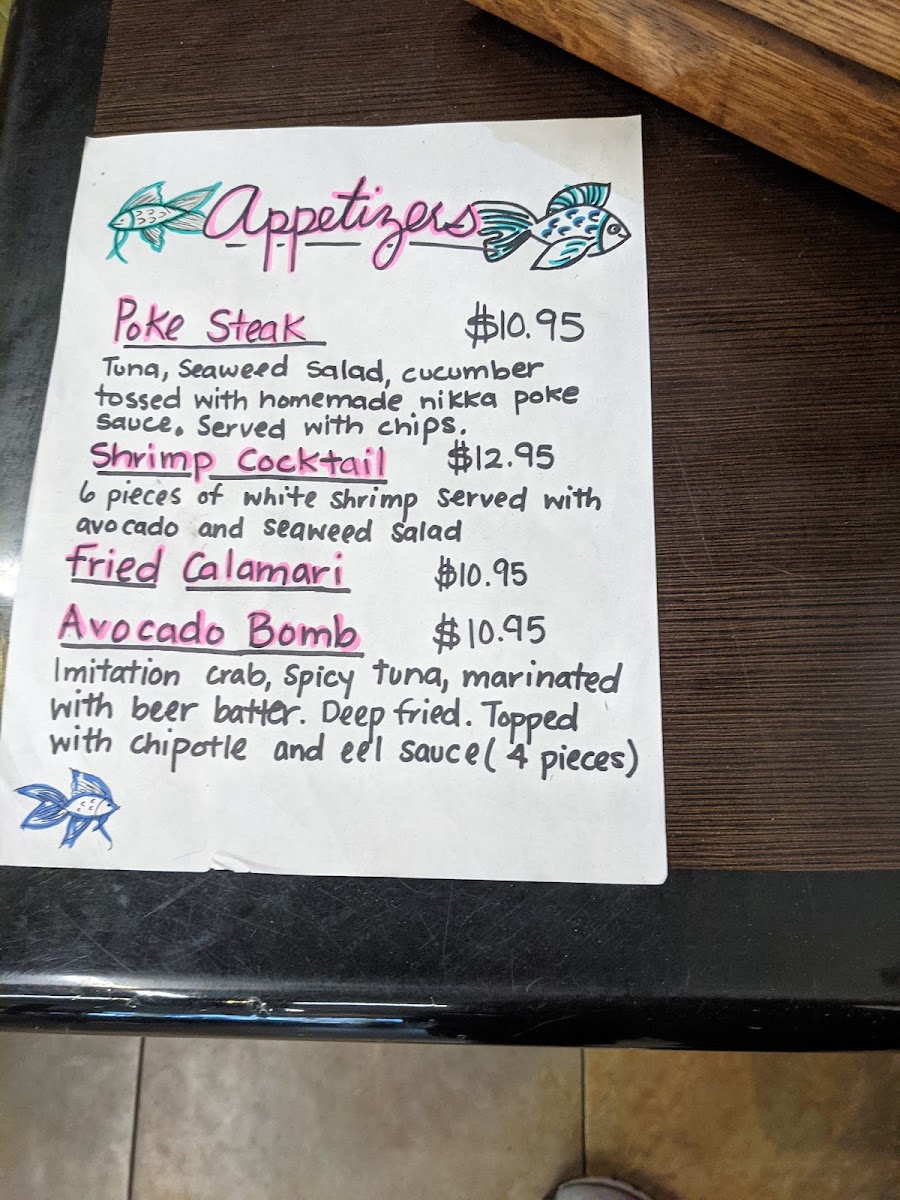 Appetizers
Poke Steak $10.95
Tuna, Seaweed Salad, cucumber
tossed with homemade nikka poke
sauce. Served with chips.
Shrimp Cocktail $12.95
6 pieces of white shrimp served with
avocado and seaweed salad
Fried Calamari $10.95
Avocado Bomb $10.95
Imitation crab, spicy tuna, marinated
with beer batter. Deep fried. Topped
with chipotle and eel sauce (4 pieces)